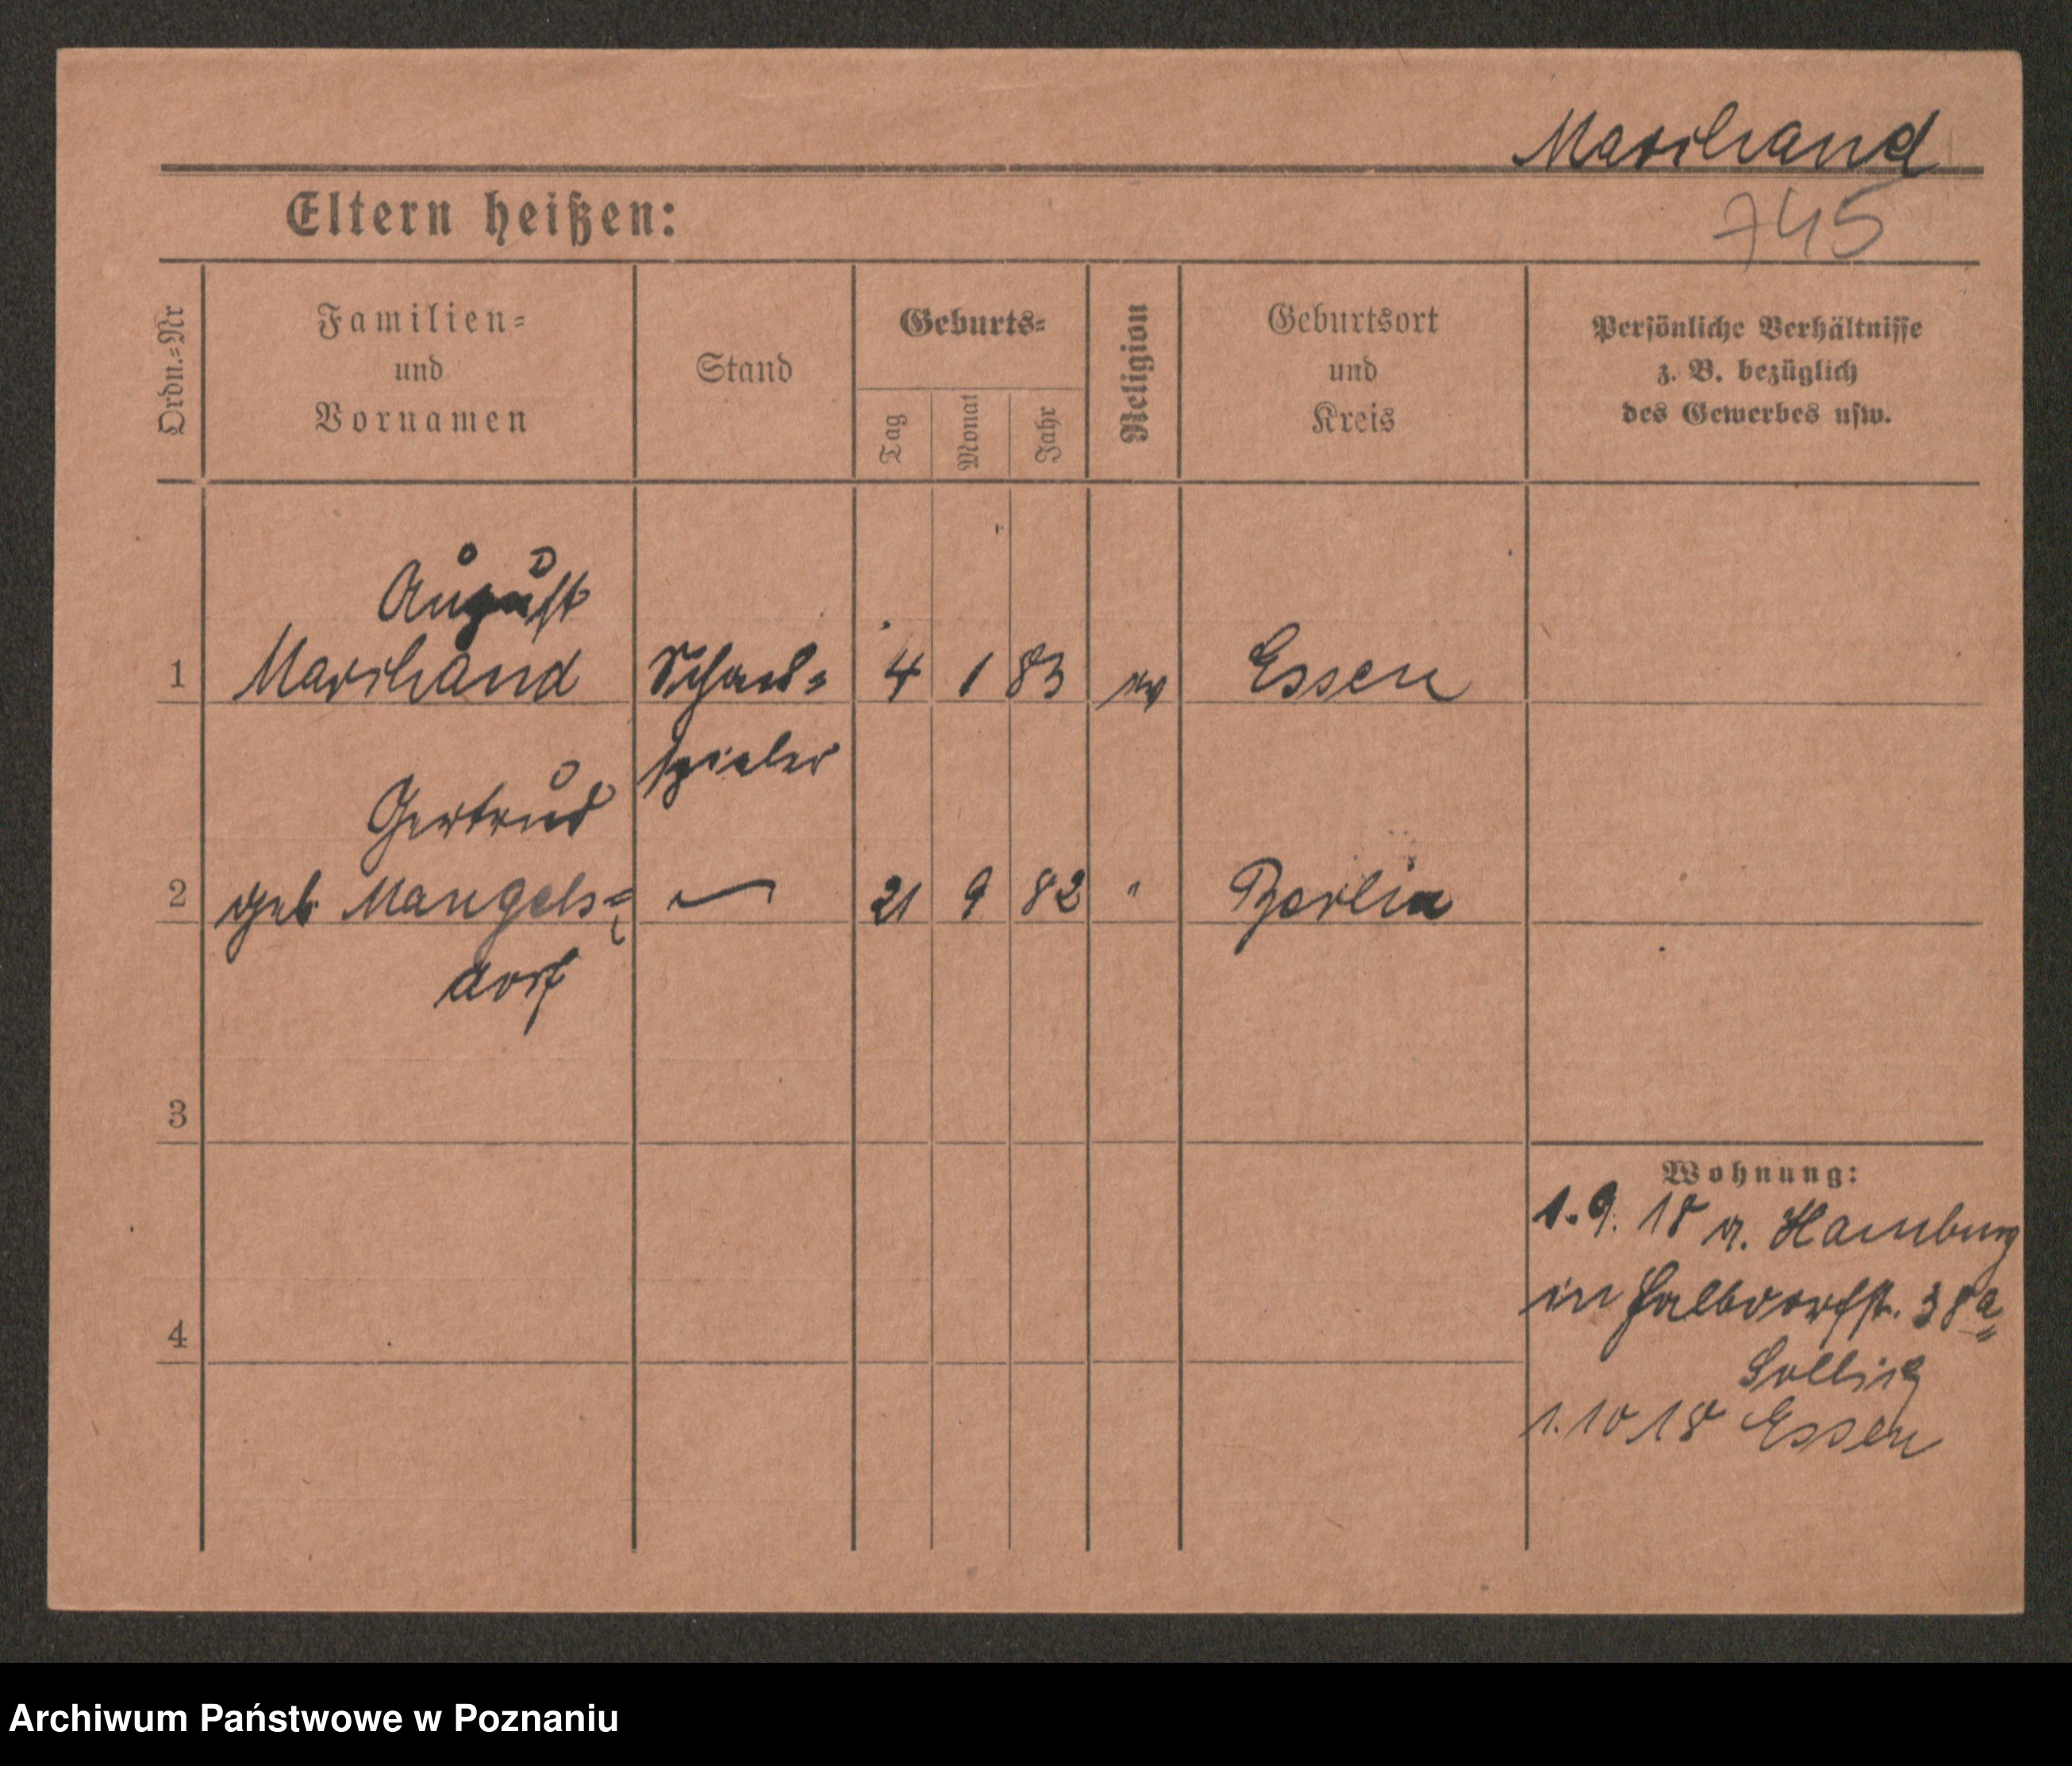 Marchand
745
Eltern heißen:
Ordn.=Nr
Familien=
und
Vornamen
Stand
Geburts=
Tag
Monat
Jahr
Religion
Geburtsort
und
Kreis
Persönliche Verhältnisse
z. B. bezüglich
des Gewerbes usw.
August
1 Marchand Schau= 4 1 83 ev Essen
spieler
Gertrud
2 geb Mangels= — 21 9 82 " Berlin
dorf
3
Wohnung:
1.9.18 v. Hamburg
in Halbdorfstr. 38a
4
1.10 18 Essen
Archiwum Państwowe w Poznaniu